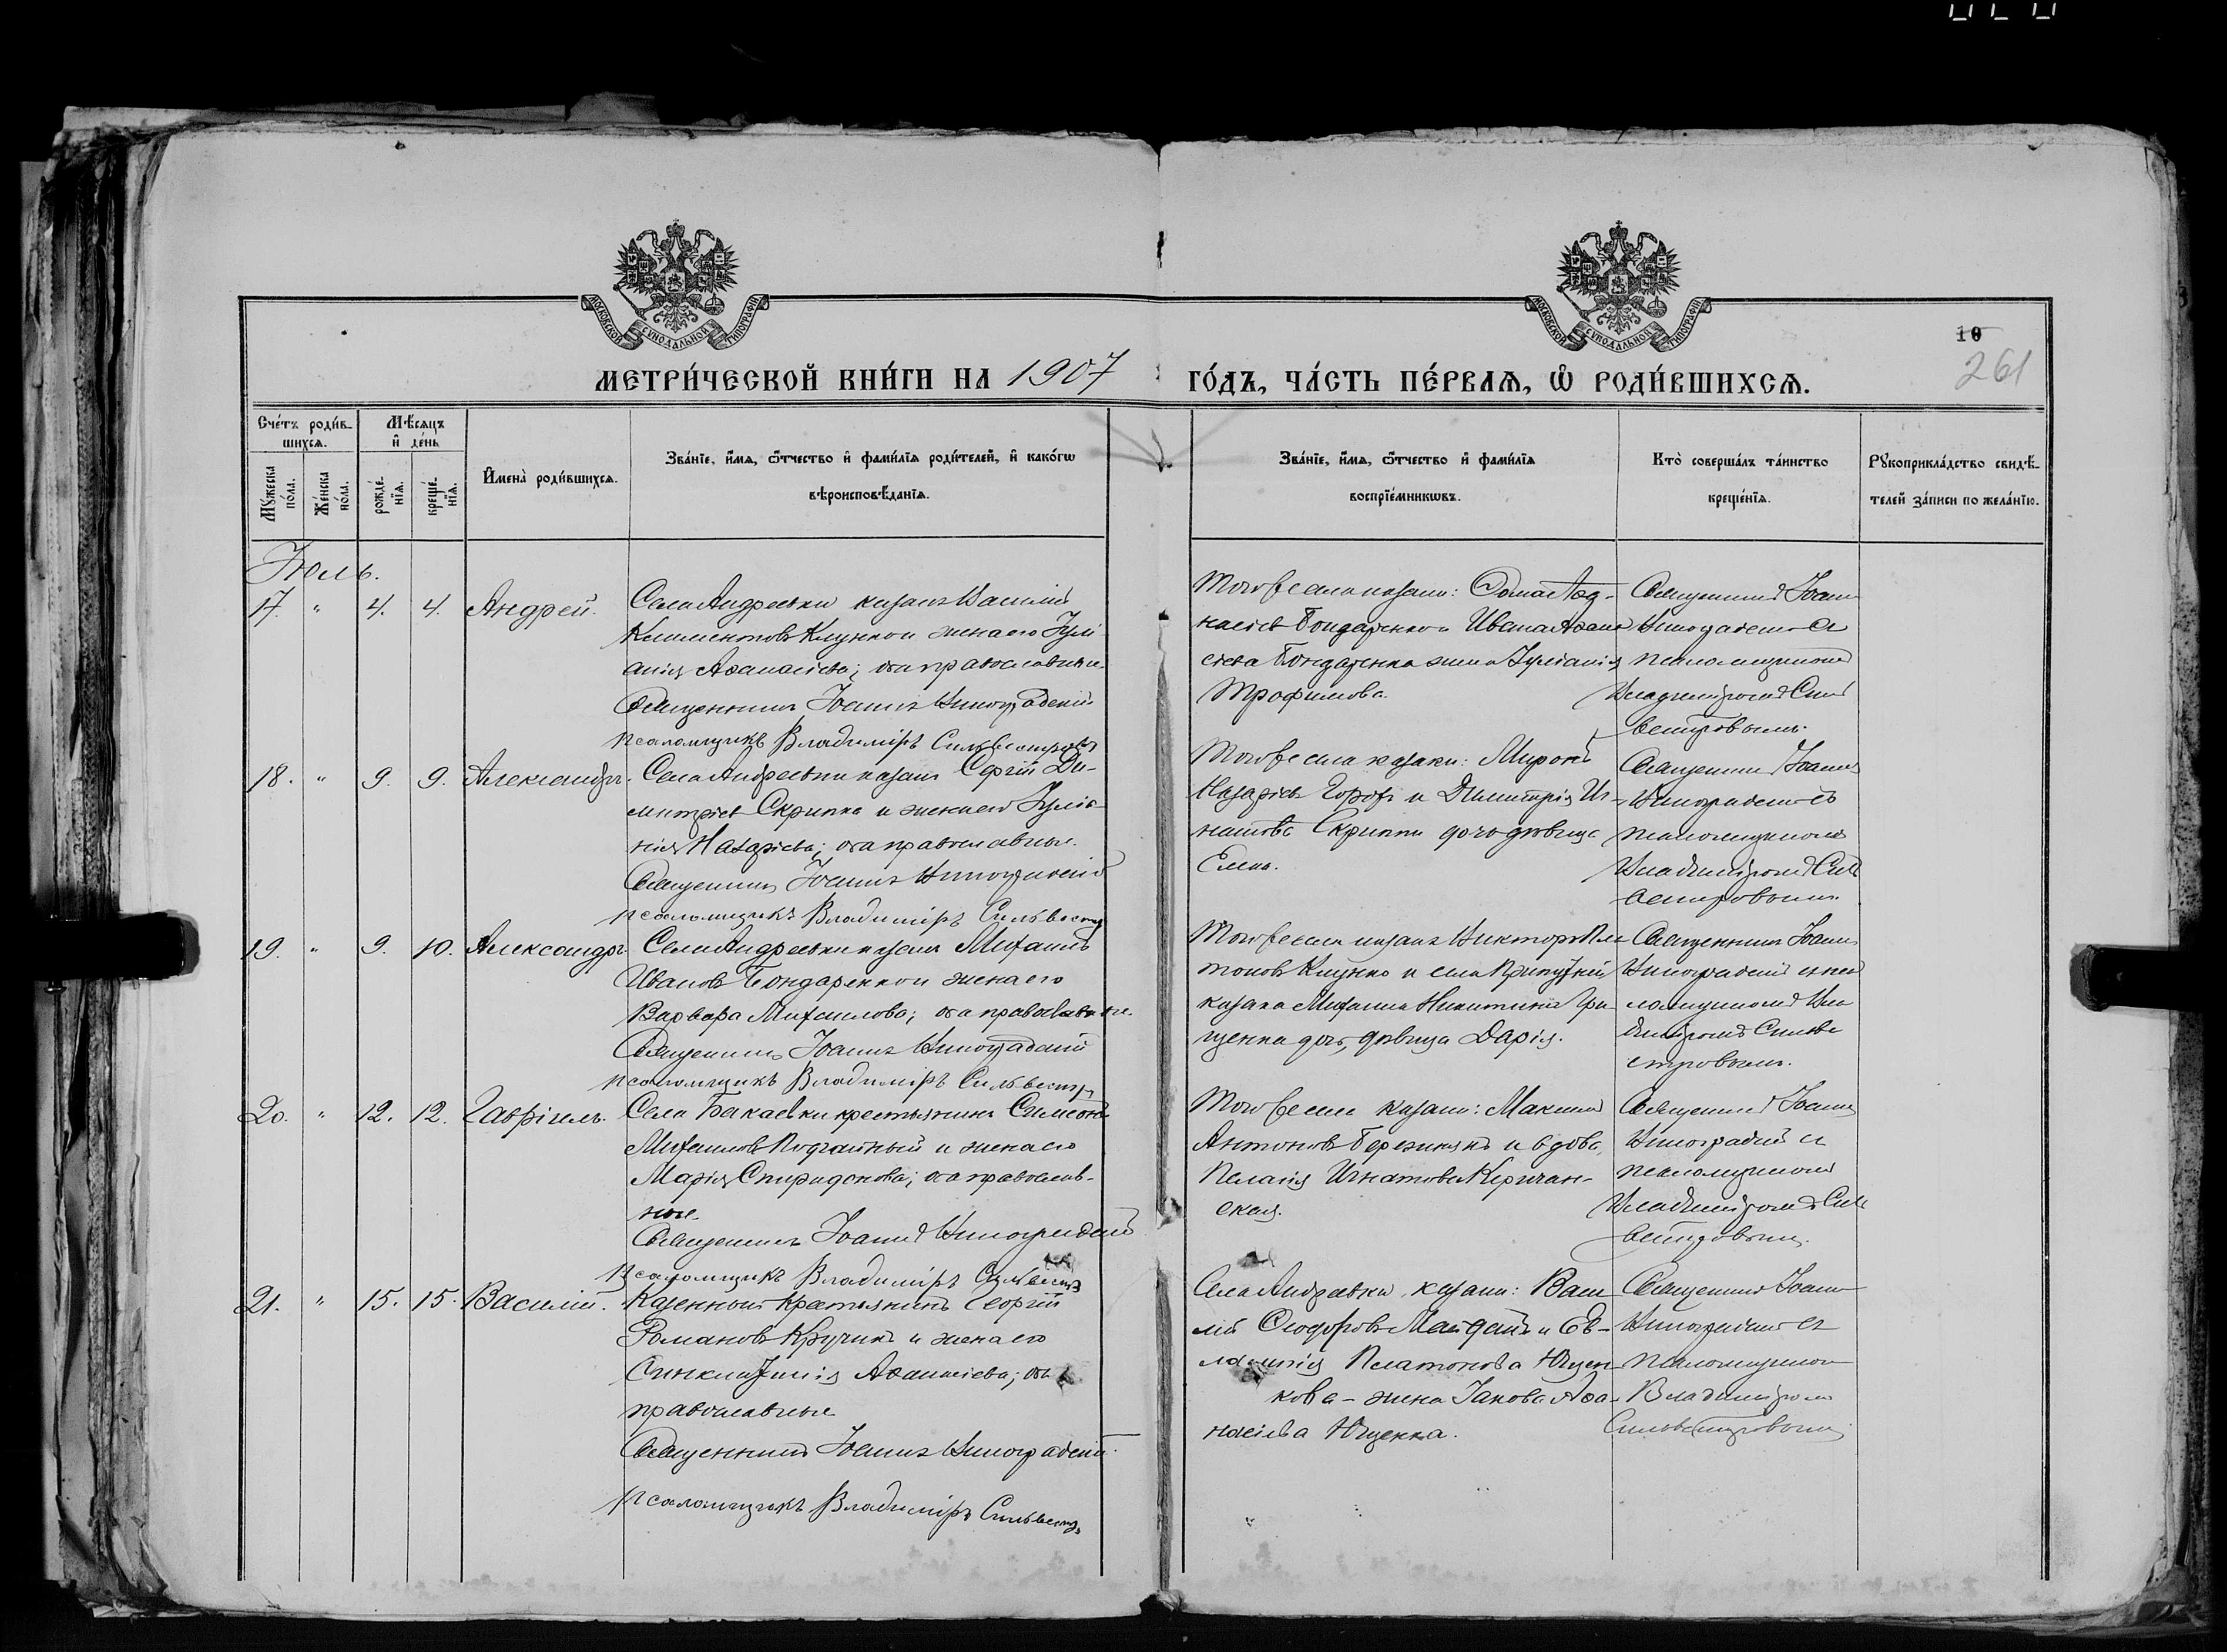 МОСКОВСКОЙ СѴНОДАЛЬНОЙ ТИПОГРАФІИ
МОСКОВСКОЙ СѴНОДАЛЬНОЙ ТИПОГРАФІИ
10
261
МЕТРИ́ЧЕСКОЙ КНИ́ГИ НА 1907
ГО́ДЪ, ЧА́СТЬ ПЕ́РВАѦ, Ѡ҆ РОДИ́ВШИХСѦ.
Сче́тъ роди́в-
шихсѧ.
Мꙋ́жеска по́ла.
Же́нска по́ла.
Мѣ́сѧцъ
и҆ де́нь
рожде́-нїѧ.
креще́-нїѧ.
И҆мена̀ роди́вшихсѧ.
Зва́нїе, и҆́мѧ, ѻ҆́тчество и҆ фами́лїѧ роди́телей, и҆ како́гѡ
вѣроисповѣ́данїѧ.
Зва́нїе, и҆́мѧ, ѻ҆́тчество и҆ фами́лїѧ
воспрїе́мникѡвъ.
Кто̀ соверша́лъ та́инство
креще́нїѧ.
Рꙋкоприкла́дство свидѣ́-
телей за́писи по жела́нїю.
Іюль.
17. " 4. 4. Андрей.
Села Андреевки козакъ Василій
Климентовъ Клунко и жена его Іулі-
анія Аѳанасіева; оба православные
Священникъ Іоаннъ Виноградскій
псаломщикъ Владиміръ Сильвестровъ
Того же села козаки: Ѳома Аѳа-
насіевъ Бондаренко и Ивана Аѳана
сіева Бондаренка жена Іуліанія
Трофимова.
Священникъ Іоаннъ
Виноградскій съ
псаломщикомъ
Владиміромъ Силь
вестровымъ.
18. " 9. 9. Александръ.
Села Андреевки козакъ Сергій Ди-
митріевъ Скрипка и жена его Іуліа-
нія Назаріева; оба православные.
Священникъ Іоаннъ Виноградскій
псаломщикъ Владиміръ Сильвестр
Того же села козаки: Миронъ
Назаріевъ и Димитрія Иг-
натова Скрипки дочь девица
Елена.
Священникъ Іоаннъ
Виноградскій съ
псаломщикомъ
Владиміромъ Силь
вестровымъ.
19. " 9. 10. Александръ
Села Андреевки козакъ Михаилъ
Ивановъ Бондаренко и жена его
Варвара Михаилова; оба православные.
Священникъ Іоаннъ Виноградскій
псаломщикъ Владиміръ Сильвестр
Того же села козакъ Викторъ Пла
тоновъ Клунко и села
козака Михаила Никитина Гри-
щенка дочь, девица Дарія.
Священникъ Іоаннъ
Виноградскій съ пса
ломщикомъ Вла
диміромъ Сильве
стровымъ.
20. " 12. 12. Гавріилъ.
Села Бакаевки крестьянинъ Симеонъ
Михаиловъ и жена его
Марія Спиридонова; оба православ-
ные.
Священникъ Іоаннъ Виноградскій
псаломщикъ Владиміръ Сильвестр
Того же села козаки: Максимъ
Антоновъ Березнякъ и вдова
Пелагія Игнатова Керичан-
ская.
Священникъ Іоаннъ
Виноградскій съ
псаломщикомъ
Владиміромъ Силь
вестровымъ.
21. " 15. 15. Василій.
Казенный крестьянинъ Георгій
Романовъ Кручинъ и жена его
Синклитикія Аѳанасіева; оба
православные
Священникъ Іоаннъ Виноградскій.
псаломщикъ Владиміръ Сильвестр
Села Андреевки козаки: Васи
лій Ѳеодоровъ Майданъ и Ев-
лампія Платонова Ющен
кова - жена Іакова Аѳа-
насіева Ющенка.
Священникъ Іоаннъ
Виноградскій съ
псаломщикомъ
Владиміромъ
Сильвестровымъ